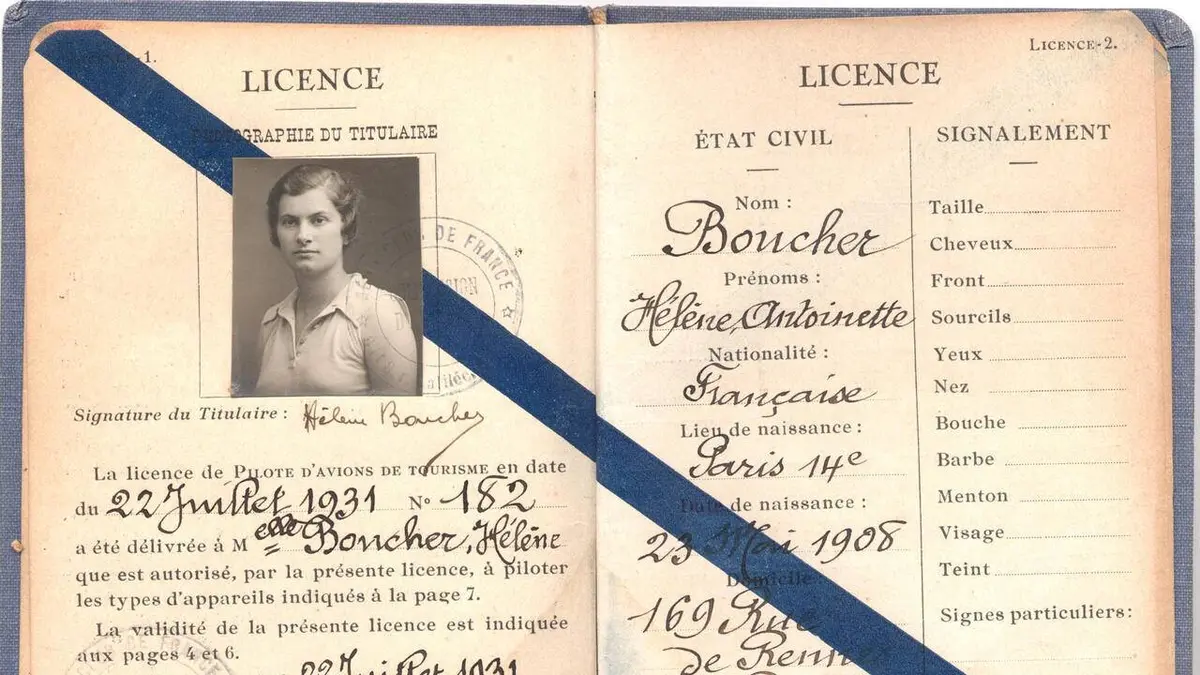 LICENCE-1.
LICENCE
PHOTOGRAPHIE DU TITULAIRE
DE FRANCE
Signature du Titulaire : Hélène Boucher
La licence de PILOTE D'AVIONS DE TOURISME en date
du 22 Juillet 1931 No 182
a été délivrée à Melle Boucher, Hélène
que est autorisé, par la présente licence, à piloter
les types d'appareils indiqués à la page 7.
La validité de la présente licence est indiquée
aux pages 4 et 6.
22 Juillet 1931
LICENCE-2.
LICENCE
ÉTAT CIVIL
Nom :
Boucher
Prénoms :
Hélène, Antoinette
Nationalité :
Française
Lieu de naissance :
Paris 14e
Date de naissance :
23 Mai 1908
Domicile :
169 Rue
de Rennes
SIGNALEMENT
Taille
Cheveux
Front
Sourcils
Yeux
Nez
Bouche
Barbe
Menton
Visage
Teint
Signes particuliers :